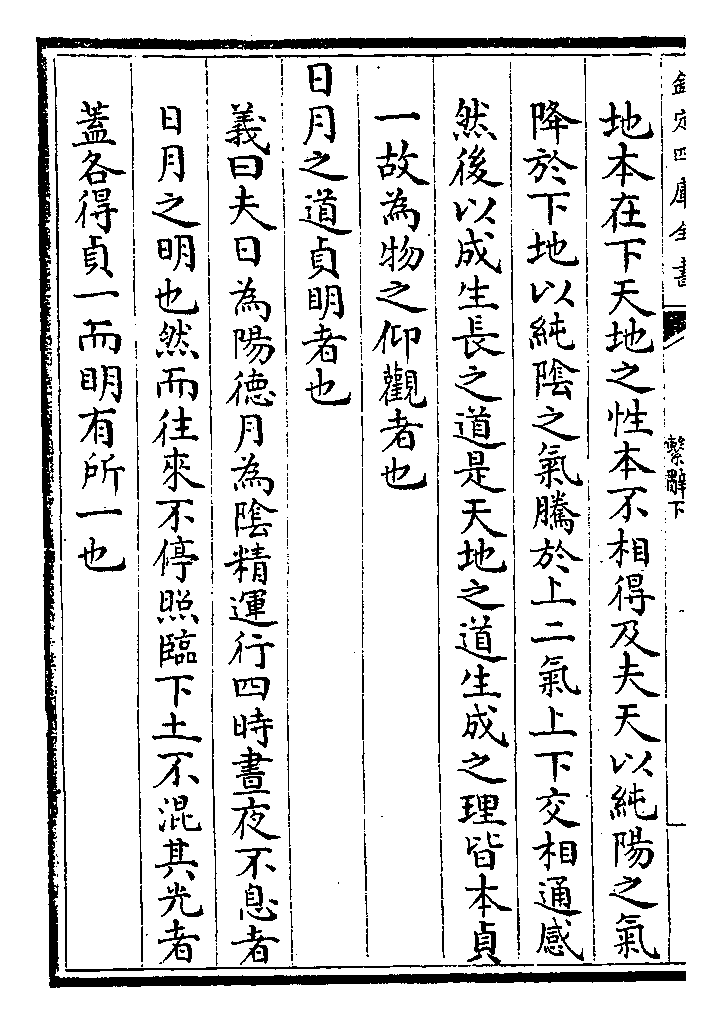 欽定四庫全書
繫辭下
地本在下天地之性本不相得及夫天以純陽之氣
降於下地以純陰之氣騰於上二氣上下交相通感
然後以成生長之道是天地之道生成之理皆本貞
一故為物之仰觀者也
日月之道貞明者也
義曰夫日為陽德月為陰精運行四時晝夜不息者
日月之明也然而往來不停照臨下土不混其光者
蓋各得貞一而明有所一也